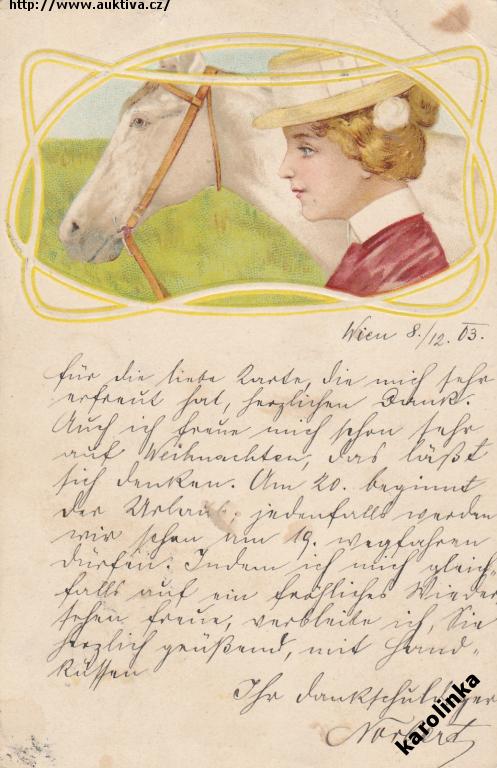 http://www.auktiva.cz/
Wien 8./12. 03.
für die liebe Karte, die mich sehr
erfreut hat, herzlichen Dank.
Auch ich freue mich schon sehr
auf Weihnachten, das läßt
sich denken. Am 20. beginnt
der Urlaub, jedenfalls werden
wir schon am 19. wegfahren
dürfen. Indem ich mich gleich-
falls auf ein fröhliches Wieder
sehen freue, verbleibe ich, Sie
herzlich grüßend, mit Hand-
küssen
Ihr dankschuldiger
Norbert
karolinka